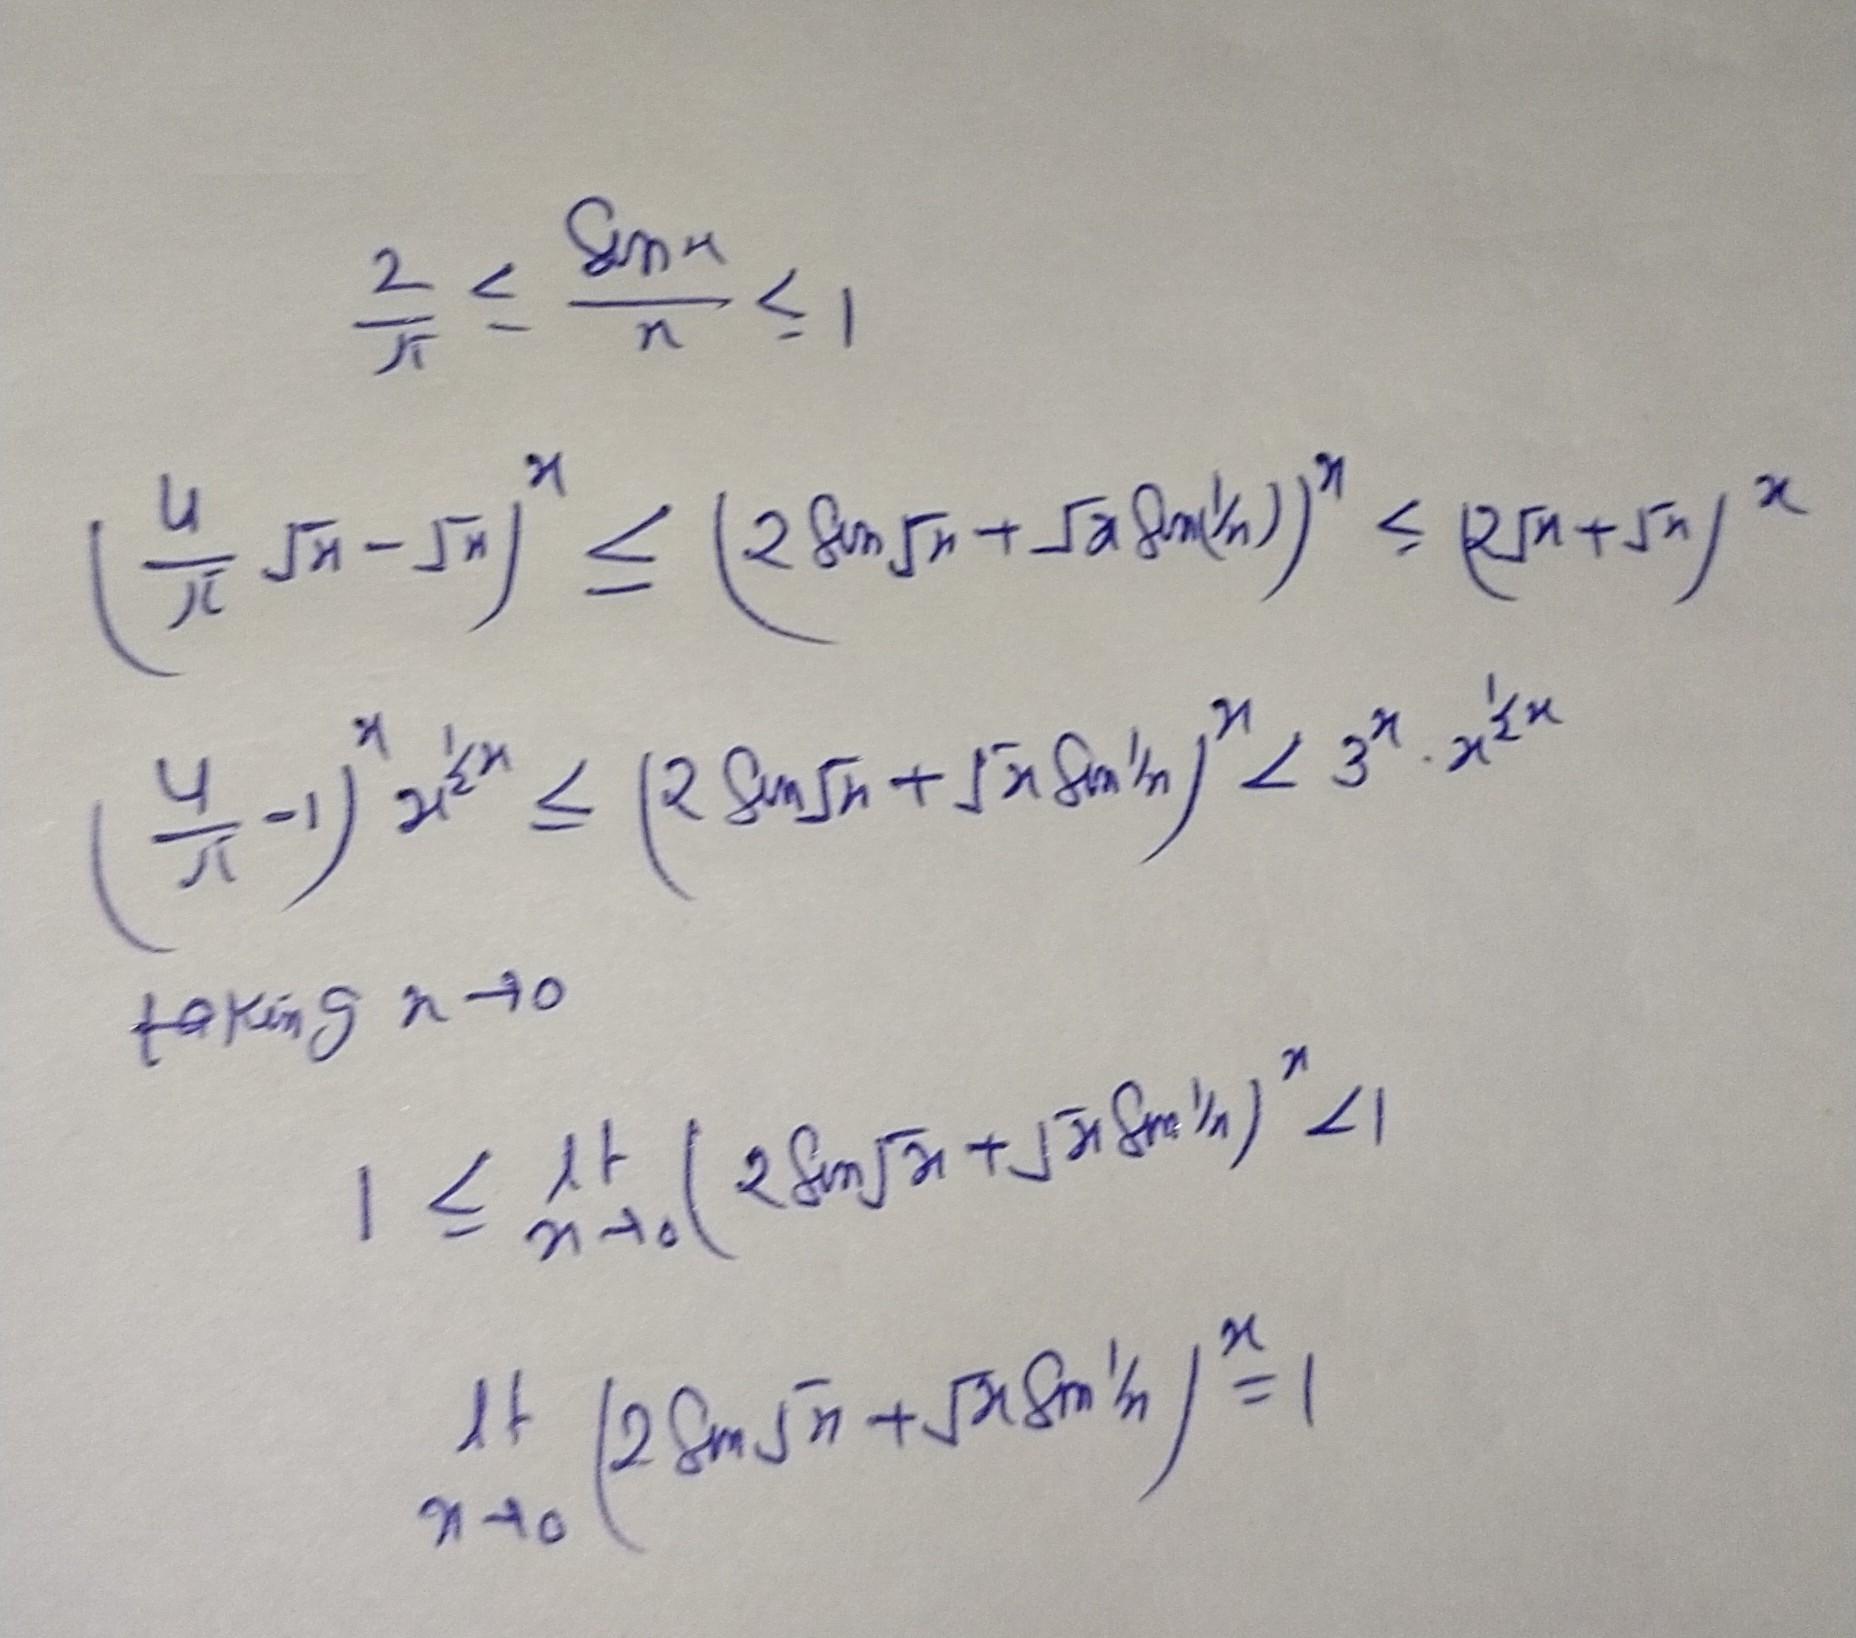 2/π ≤ Sin x / x ≤ 1
(4/π √x - √x)^x ≤ (2 Sin √x + √x Sin(1/x))^x ≤ (2√x + √x)^x
(4/π - 1)^x x^(1/2 x) ≤ (2 Sin √x + √x Sin 1/x)^x < 3^x . x^(1/2 x)
taking x → 0
1 ≤ lt x→0 (2 Sin √x + √x Sin 1/x)^x < 1
lt x→0 (2 Sin √x + √x Sin 1/x)^x = 1